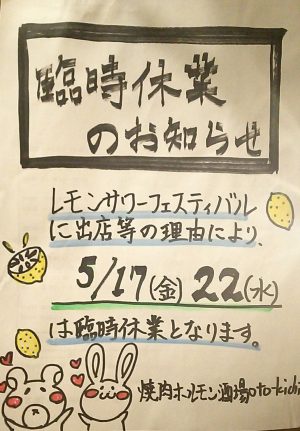 臨時休業
のお知らせ
レモンサワーフェスティバル
に出店等の理由により、
5/17(金) 22(水)
は臨時休業となります。
焼肉ホルモン酒場oto-kichi